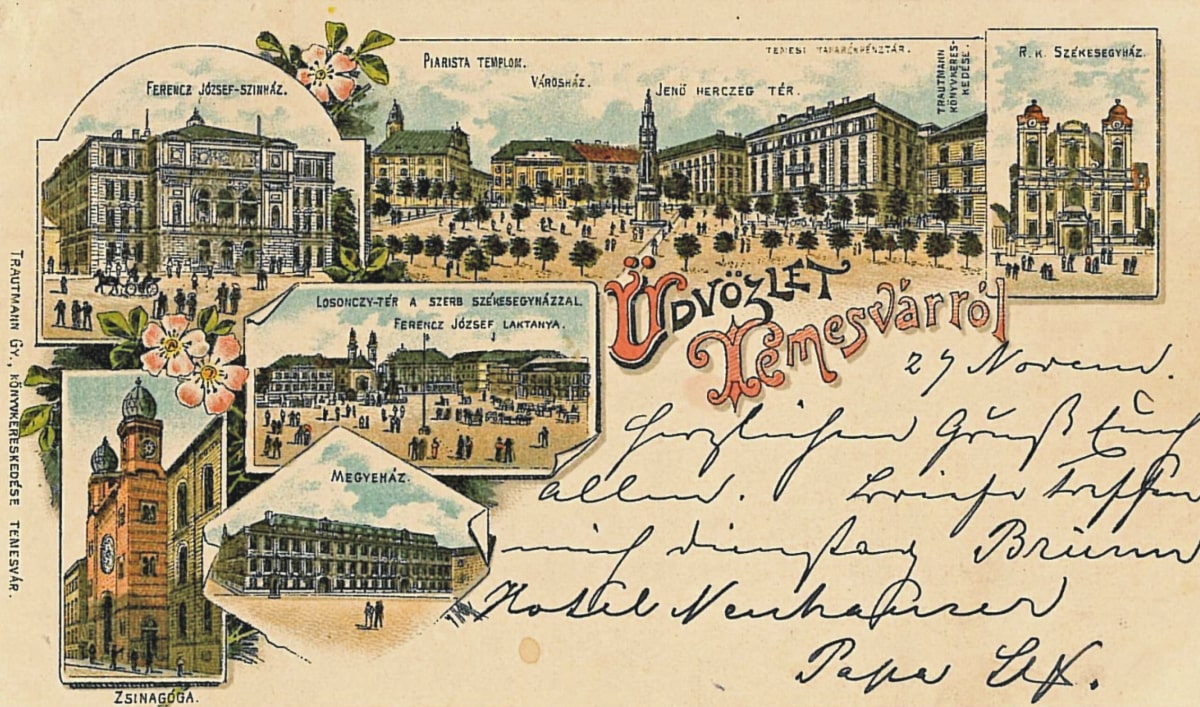 FERENCZ JÓZSEF-SZINHÁZ.
PIARISTA TEMPLOM.
VÁROSHÁZ.
JENŐ HERCZEG TÉR.
TEMESI TAKARÉKPÉNZTÁR.
TRAUTMANN
KÖNYVKERES-
KEDÉSE.
R. K. SZÉKESEGYHÁZ.
LOSONCZY-TÉR A SZERB SZÉKESEGYHÁZZAL.
FERENCZ JÓZSEF LAKTANYA.
MEGYEHÁZ.
ZSINAGÓGA.
TRAUTMANN GY, KÖNYVKERESKEDÉSE TEMESVÁR.
ÜDVÖZLET
TEMESVÁRRÓL
27 Novem.
Herzlichen Gruß Euch
allen. Briefe treffen
mich Dienstag Brünn
Hotel Neuhauser
Papa